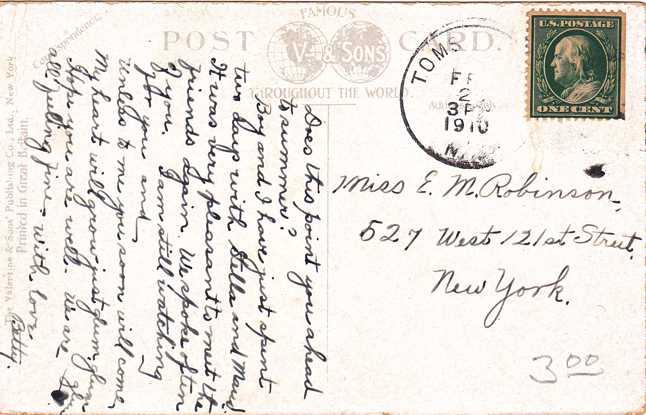 Correspondence.
FAMOUS
POST CARD.
V & SONS
THROUGHOUT THE WORLD.
The Valentine & Sons' Publishing Co., Ltd., New York
Printed in Great Britain.
TOMS
2
1910
U.S. POSTAGE
ONE CENT
Does this point you ahead
to summer?
Boy and I have just spent
two days with Stella and
It was very pleasant to meet the
friends again. We spoke often
of you. I am still watching
for you and
unless to me you soon will come,
My heart will grow just glum, glum
Hope you are well. We are
all feeling fine - with love
Betty.
Miss E. M. Robinson,
527 West 121st Street,
New York.
3 00